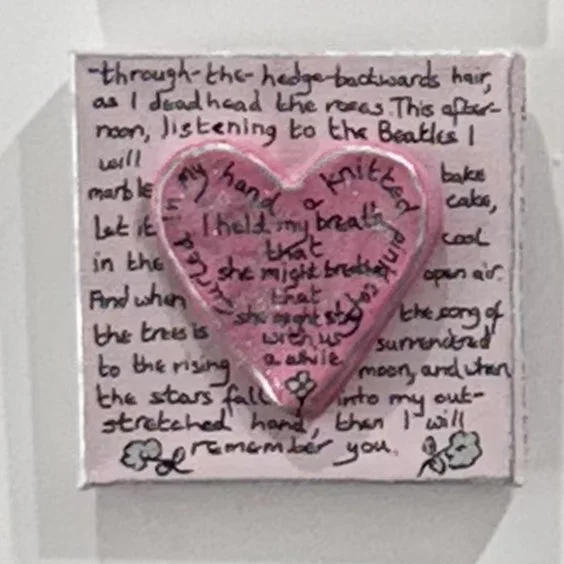 -through-the-hedge-backwards hair,
as I deadhead the roses. This after-
noon, listening to the Beatles I
will bake
marble cake,
Let it cool
in the open air.
And when the song of
the trees is surrendred
to the rising moon, and when
the stars fall into my out-
stretched hand, then I will
remember you.
curled in my hand a knitted pink
I held my breath
that
she might breathe
that
she might stay
with us
a while.